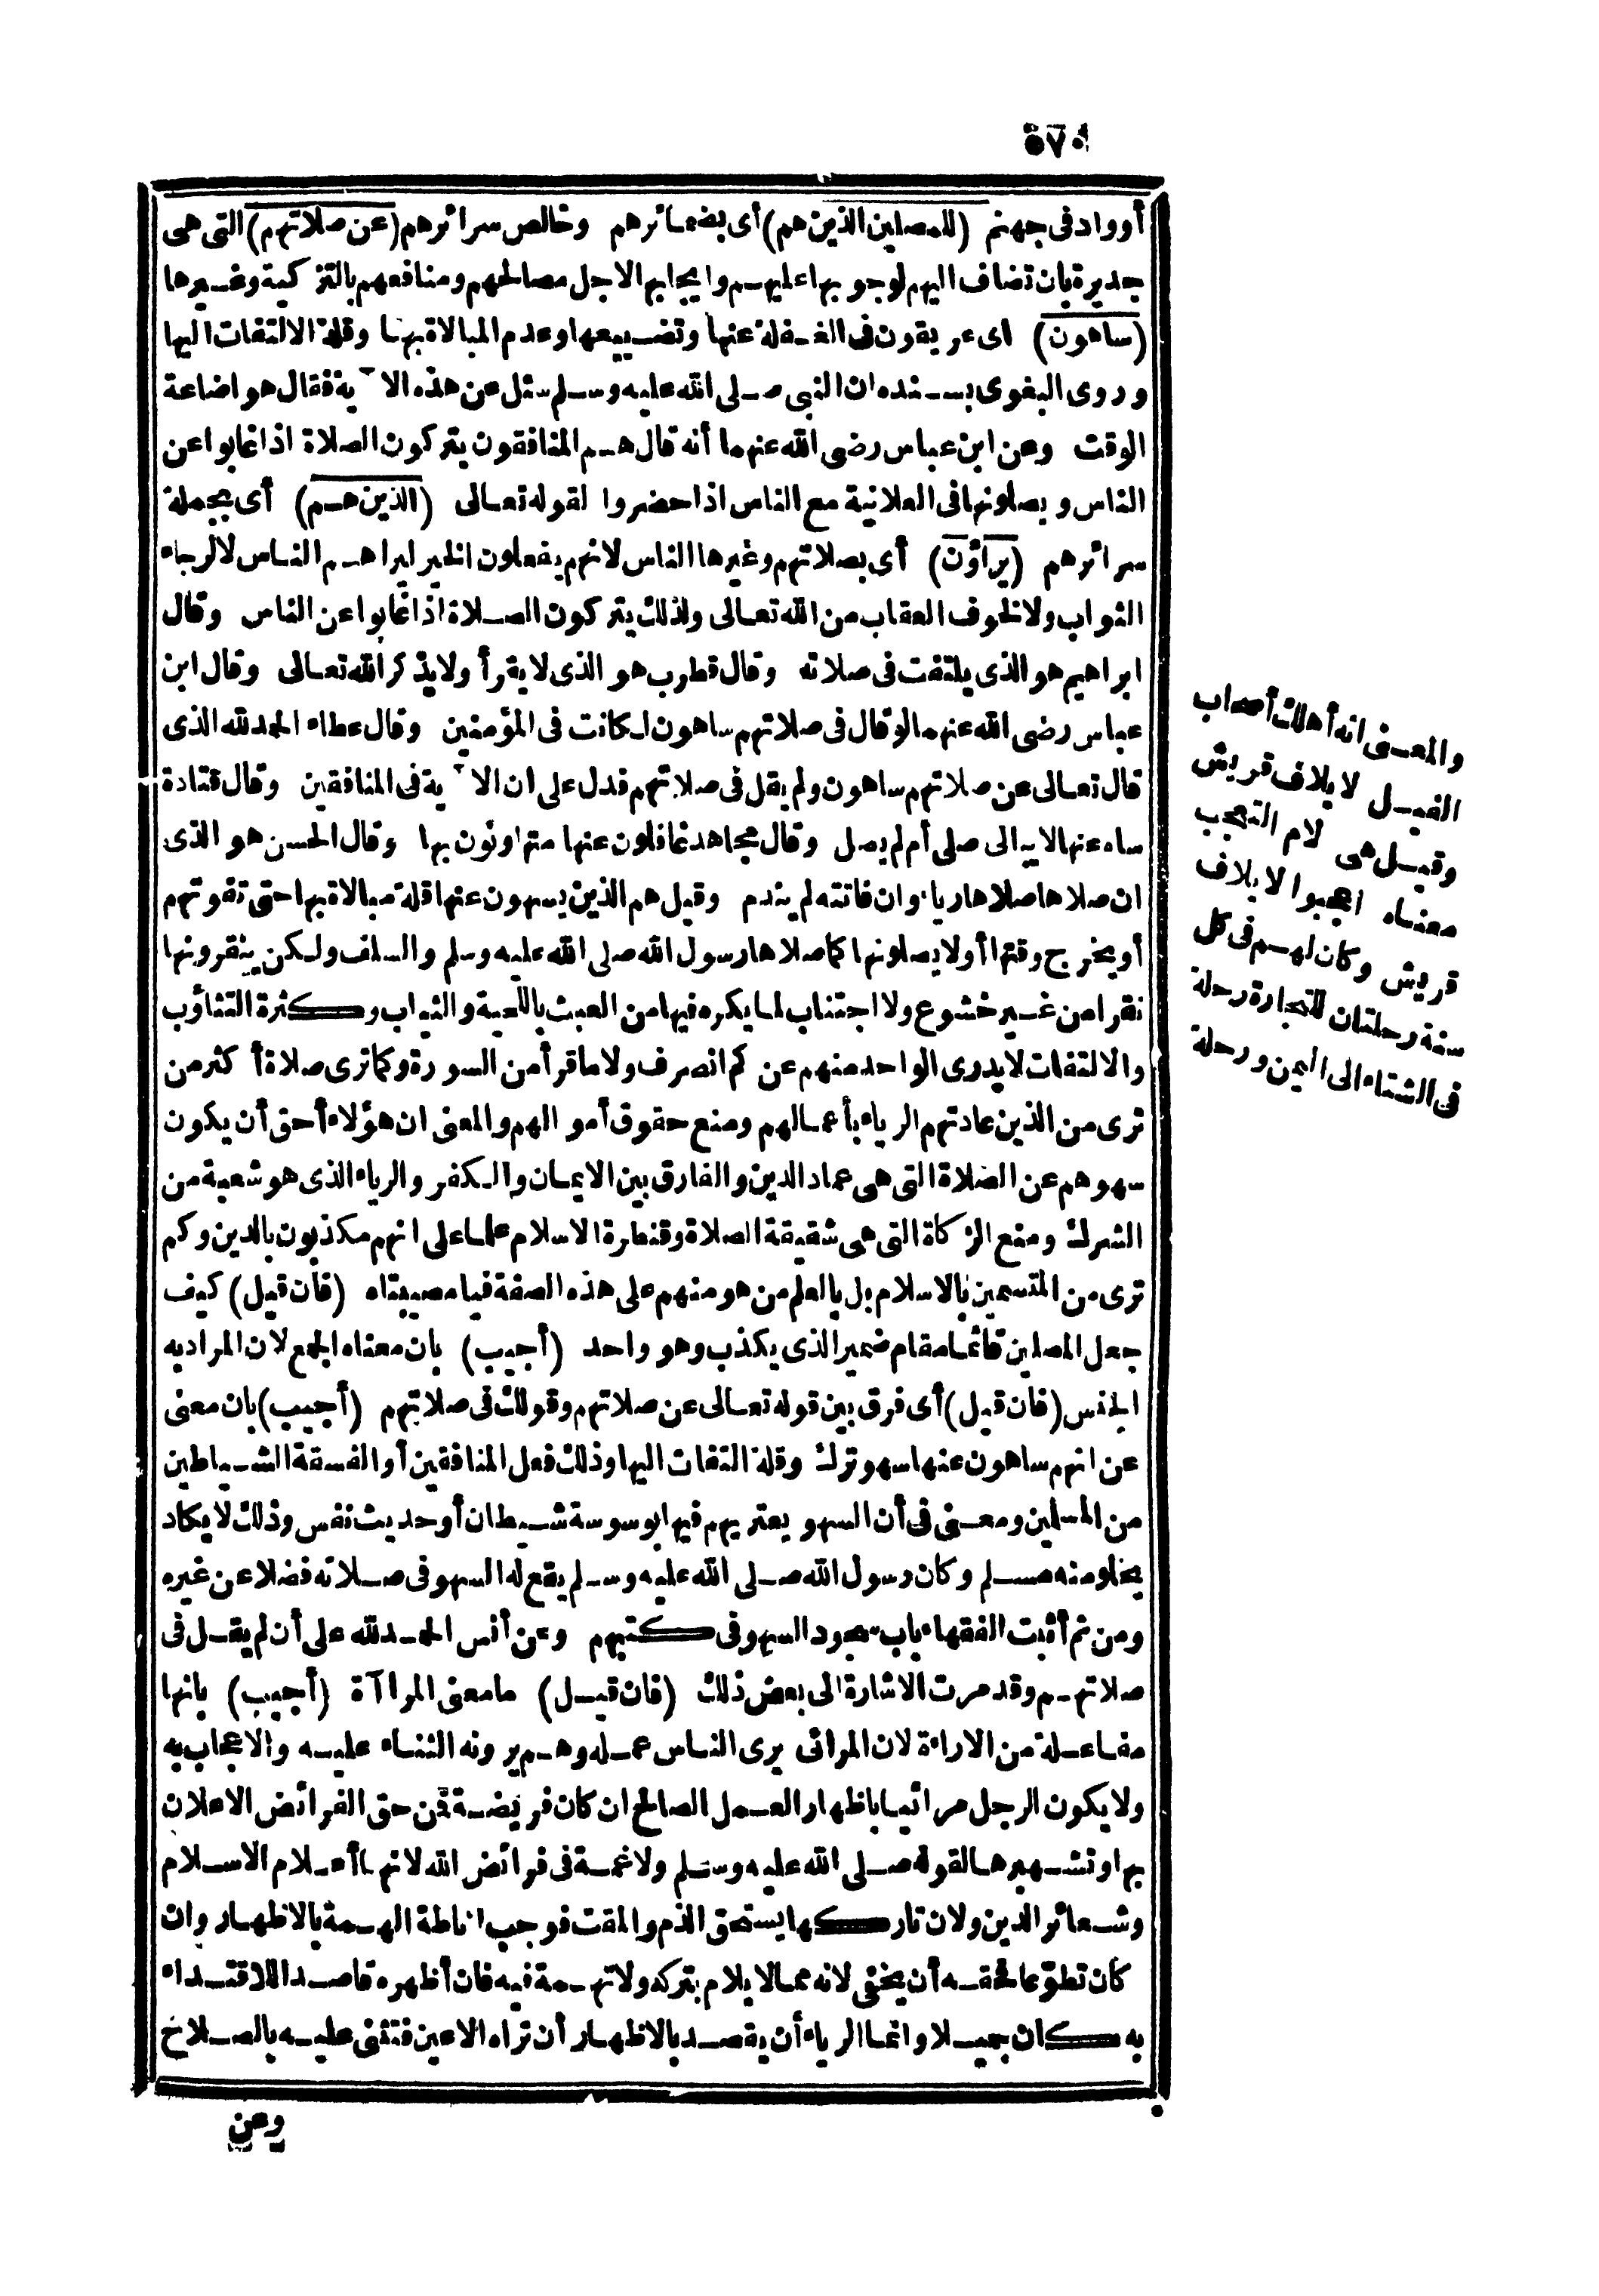 ٥٧٠
أو واد فى جهنم (للمصلين الذين هم) أى بضمائرهم وخالص سرائرهم (عن صلاتهم) التى هى
جديرة بان تضاف اليهم لوجوبها عليهم وايجابها لاجل مصالحهم ومنافعهم بالتزكية وغيرها
(ساهون) اى عريقون فى الغفلة عنها وتضييعها وعدم المبالاة بها وقلة الالتفات اليها
وروى البغوى بسنده ان النبى صلى الله عليه وسلم سئل عن هذه الآية فقال هو اضاعة
الوقت وعن ابن عباس رضى الله عنهما أنه قال هم المنافقون يتركون الصلاة اذا غابوا عن
الناس ويصلونها فى العلانية مع الناس اذا حضروا لقوله تعالى (الذين هم) أى بجملة
سرائرهم (يراؤن) أى بصلاتهم وغيرها الناس لانهم يفعلون الخير ليراهم الناس لا لرجاء
الثواب ولا لخوف العقاب من الله تعالى ولذلك يتركون الصلاة اذا غابوا عن الناس وقال
ابراهيم هو الذى يلتفت فى صلاته وقال قطرب هو الذى لا يقرأ ولا يذكر الله تعالى وقال ابن
عباس رضى الله عنهما لو قال فى صلاتهم ساهون لكانت فى المؤمنين وقال عطاء الحمد لله الذى
قال تعالى عن صلاتهم ساهون ولم يقل فى صلاتهم فدل على ان الآية فى المنافقين وقال قتادة
ساه عنها لا يبالى صلى أم لم يصل وقال مجاهد غافلون عنها متهاونون بها وقال الحسن هو الذى
ان صلاها صلاها رياء وان فاتته لم يندم وقيل هم الذين يسهون عنها قلة مبالاة بها حتى تفوتهم
أو يخرج وقتها أو لا يصلونها كما صلاها رسول الله صلى الله عليه وسلم والسلف ولكن ينقرونها
نقرا من غير خشوع ولا اجتناب لما يكره فيها من العبث باللحية والثياب وكثرة التثاؤب
والالتفات لا يدرى الواحد منهم عن كم انصرف ولا ما قرأ من السورة وكما ترى صلاة أكثر من
ترى من الذين عادتهم الرياء بأعمالهم ومنع حقوق أموالهم والمعنى ان هؤلاء أحق أن يكون
سهوهم عن الصلاة التى هى عماد الدين والفارق بين الايمان والكفر والرياء الذى هو شعبة من
الشرك ومنع الزكاة التى هى شقيقة الصلاة وقنطرة الاسلام علما على انهم مكذبون بالدين وكم
ترى من المتسمين بالاسلام بل بالعلم من هو منهم على هذه الصفة فيا مصيبتاه (فان قيل) كيف
جعل المصلين قائما مقام ضمير الذى يكذب وهو واحد (أجيب) بان معناه الجمع لان المراد به
الجنس (فان قيل) أى فرق بين قوله تعالى عن صلاتهم وقولك فى صلاتهم (أجيب) بان معنى
عن انهم ساهون عنها سهو ترك وقلة التفات اليها وذلك فعل المنافقين أو الفسقة الشياطين
من المسلمين ومعنى فى أن السهو يعتريهم فيها بوسوسة شيطان أو حديث نفس وذلك لا يكاد
يخلو منه مسلم وكان رسول الله صلى الله عليه وسلم يقع له السهو فى صلاته فضلا عن غيره
ومن ثم أثبت الفقهاء باب سجود السهو فى كتبهم وعن أنس الحمد لله على أن لم يقل فى
صلاتهم وقد مرت الاشارة الى بعض ذلك (فان قيل) ما معنى المراآة (أجيب) بانها
مفاعلة من الاراءة لان المرائى يرى الناس عمله وهم يرونه الثناء عليه والاعجاب به
ولا يكون الرجل مرائيا باظهار العمل الصالح ان كان فريضة فمن حق الفرائض الاعلان
بها وتشهيرها لقوله صلى الله عليه وسلم ولا غمة فى فرائض الله لانها أعلام الاسلام
وشعائر الدين ولان تاركها يستحق الذم والمقت فوجب اناطة الهمة بالاظهار وان
كان تطوّعا فحقه أن يخفى لانه مما لا يلام بتركه ولا تهمة فيه فان أظهره قاصدا للاقتداء
به كان جميلا وانما الرياء أن يقصد بالاظهار أن تراه الاعين فتثنى عليه بالصلاح
ومن
والمعنى انه أهلك أصحاب
الفيل لايلاف قريش
وقيل هى لام التعجب
معناه اعجبوا لايلاف
قريش وكان لهم فى كل
سنة رحلتان للتجارة رحلة
فى الشتاء الى اليمن ورحلة